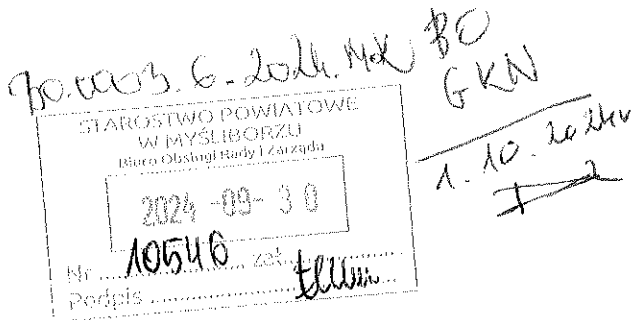 BO.0003.6.2024.MK BO
GKN
1.10.2024r
STAROSTWO POWIATOWE
W MYŚLIBORZU
Biuro Obsługi Rady i Zarządu
2024 -09- 3 0
Nr 10546 zał.
Podpis